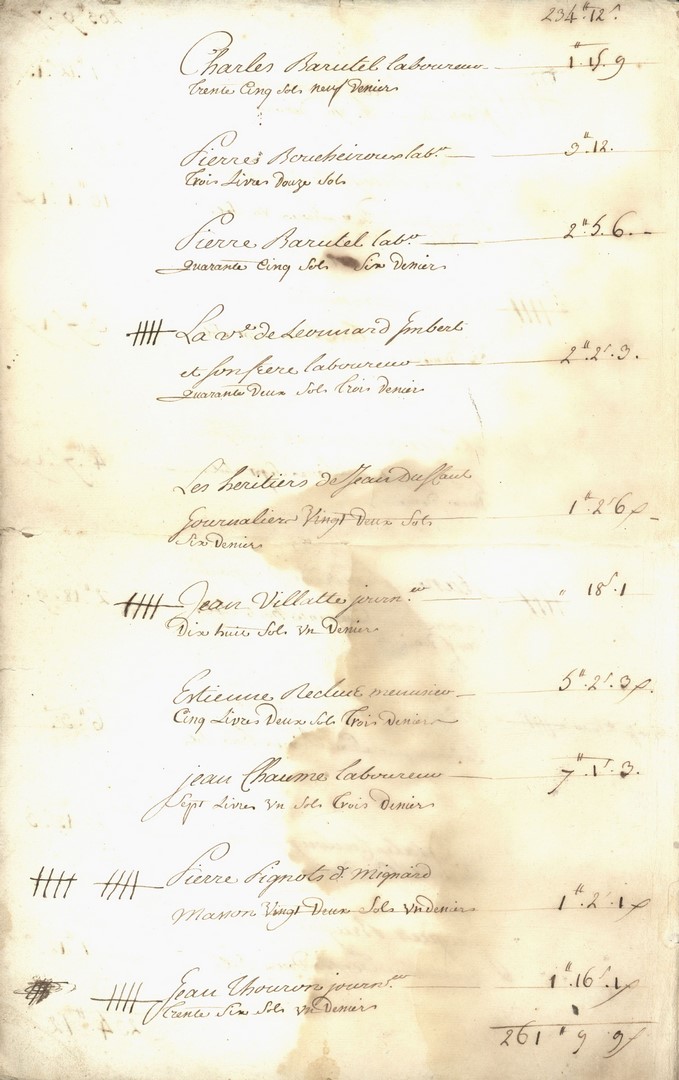 234ᴴ.12ˢ.
Charles Barutel laboureur 1ᴴ.15.9
trente Cinq Sols neuf Deniers
Pierre Boucheiroux labʳ 3ᴴ.12.
Trois Livres Douze Sols
Pierre Barutel labʳ 2ᴴ.5.6.
quarante Cinq Sols Six Deniers
La vᵉ de Leonnard Jmbert
et son frere laboureur 2ᴴ.2ˢ.3.
quarante Deux Sols trois Deniers
Les heritiers de Jean
Journaliers Vingt Deux Sols 1ᴴ.2ˢ.6
Six Deniers
Jean Villatte journᵉʳ " 18ˢ.1
Dix huit Sols vn Denier
Estienne Reclus meunier 5ᴴ.2ˢ.3
Cinq Livres Deux Sols Trois Deniers
jean Chaume laboureur 7ᴴ.1ˢ.3.
Sept Livres vn Sols Trois Deniers
Pierre Pignots d. Mignard
Masson Vingt Deux Sols vn denier 1ᴴ.2ˢ.1
Jean Thouron journᵉʳ 1ᴴ.16ˢ.1
trente Six Sols vn Denier
261ᴴ 9 9